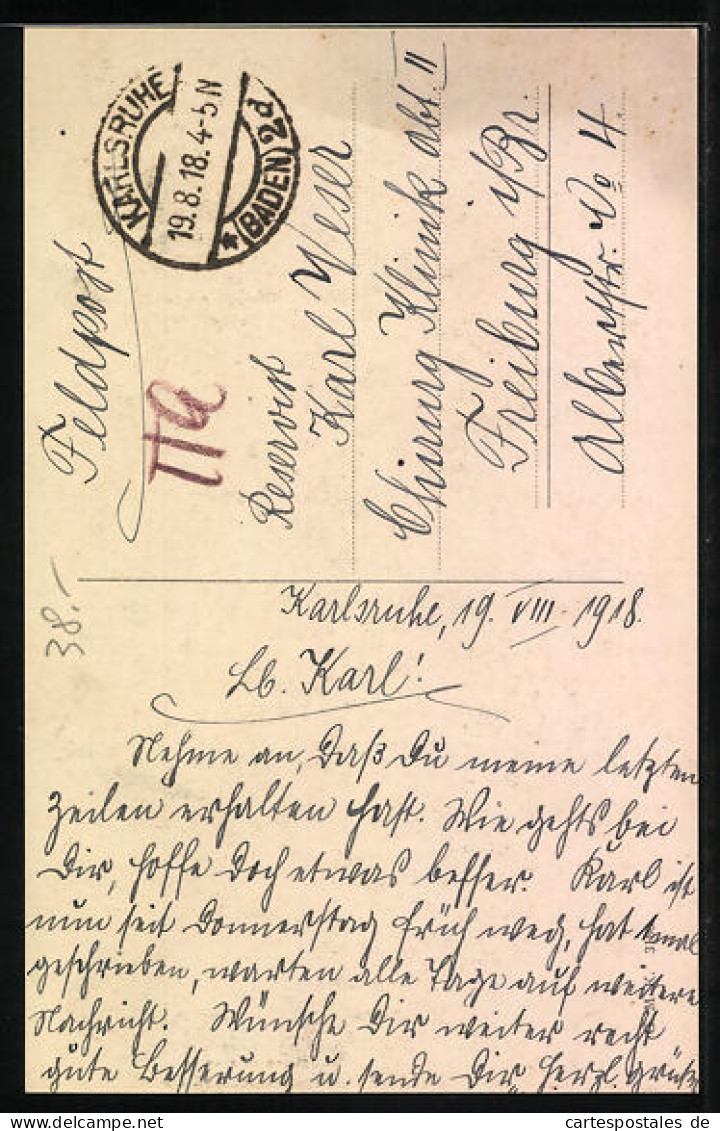 Feldpost
KARLSRUHE
19.8.18.4-5N
* (BADEN) 2d
IIa
Reservist
Karl Weser
Chirurg Klinik Abt. II
Freiburg i/Br.
Albertstr. No 4.
38.-
Karlsruhe, 19. VIII 1918.
Lb. Karl!
Nehme an, daß Du meine letzten
Zeilen erhalten hast. Wie gehts bei
Dir, hoffe doch etwas besser. Karl ist
nun seit Donnerstag früh weg, hat 1mal
geschrieben, warten alle Tage auf weitere
Nachricht. Wünsche Dir weiter recht
gute Besserung u. sende Dir herzl. Grüße
www.ansichtskartenversand.com
cartespostales de